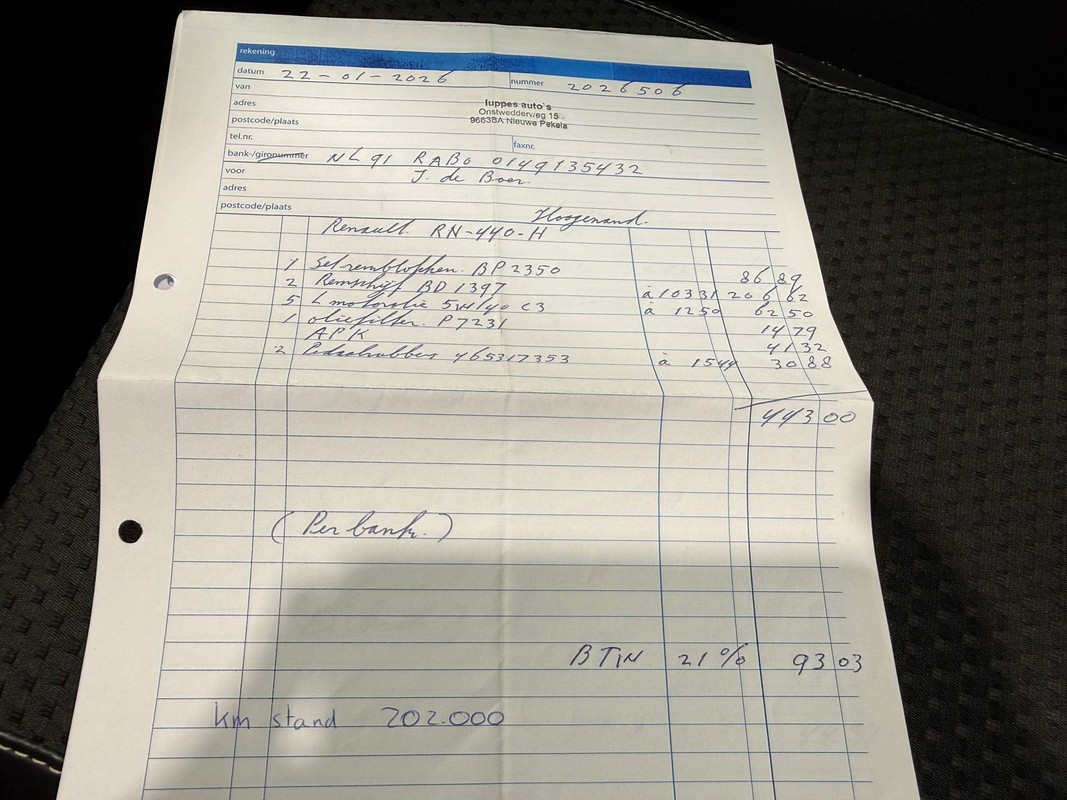 rekening
datum 22-01-2026 nummer 2026506
van
luppes auto's
adres
Onstwedderweg 15
postcode/plaats 9663BA Nieuwe Pekela
tel.nr. faxnr.
bank-/gironummer NL91 RABO 0149135432
voor J. de Boer.
adres
postcode/plaats Hoogezand.
Renault. RN-440-H
1 Set remblokken. BP2350 86 89
2 Remschijf BD 1397 à 10331 206 62
5 L motorolie 5W40 C3 à 1250 62 50
1 oliefilter. P7231 14 79
APK 41 32
2 Pedaalrubbers 465317353 à 1544 30 88
443 00
(Per bank.)
BTW 21% 93 03
km stand 202.000